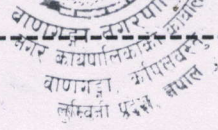 बाणगङ्गा नगरपा
नगर कार्यपालिकाको कार्यालय
बाणगङ्गा, कपिलवस्तु
लुम्बिनी प्रदेश, नेपाल